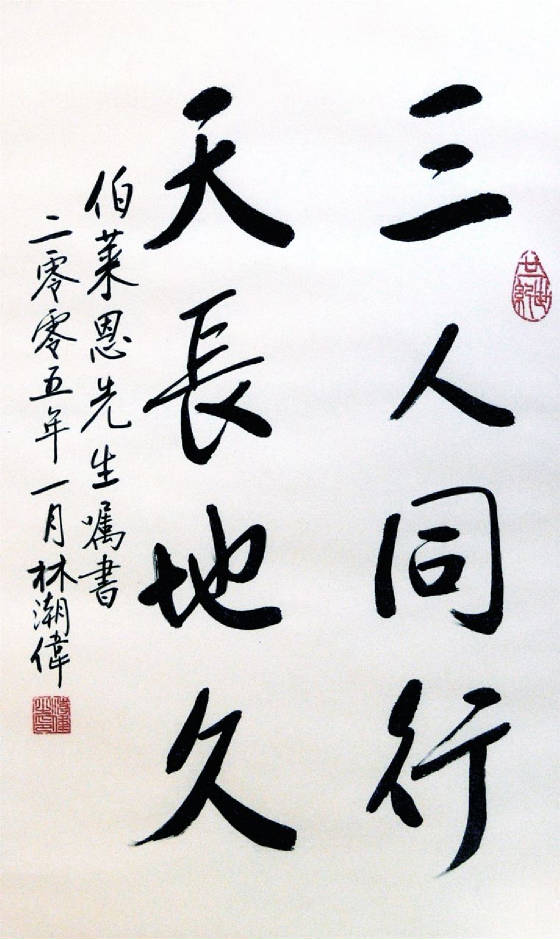 三人同行
天長地久
伯萊恩先生嘱書
二零零五年一月林潮偉